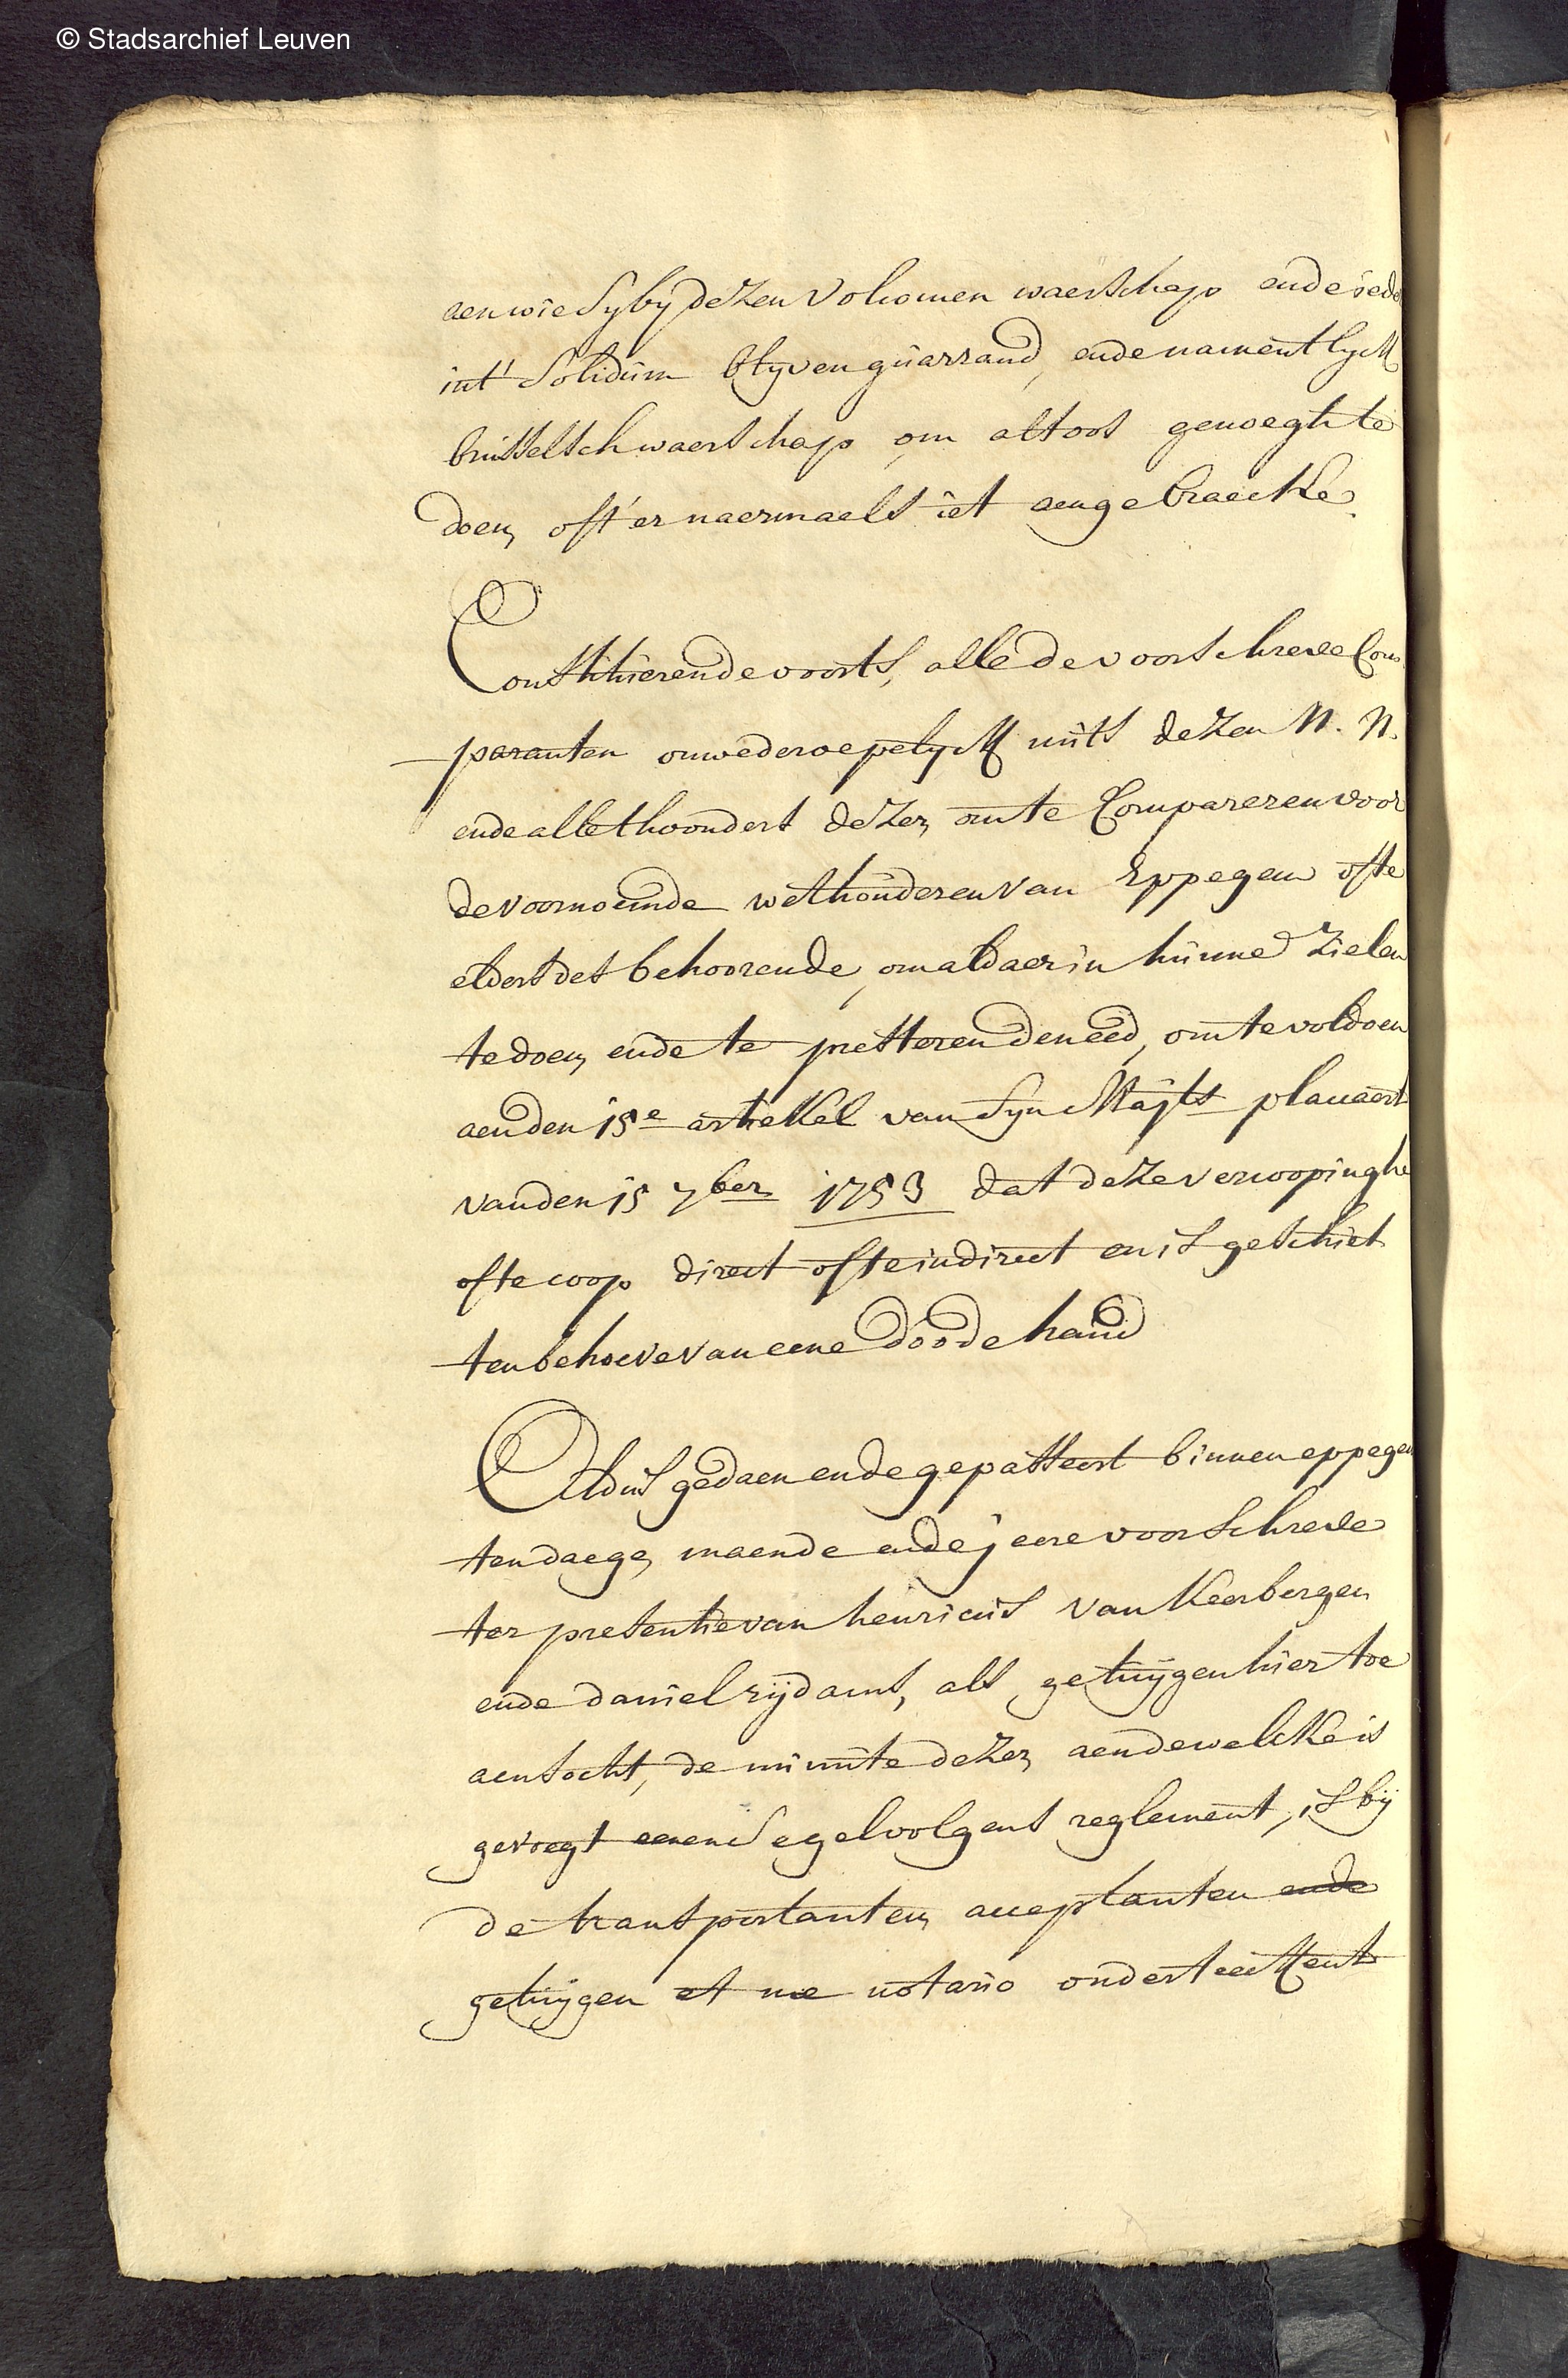 © Stadsarchief Leuven
aen wie sy by dezen volcomen waerschap ende iede
int' solidum blyven guarrand, ende namentlyck
brusselsch waerschap om altoos genoegh te
doen, oft'er naermaels iet aengebraecke.
Constituerende voorts, alle de voorschreve Com
paranten onwederoepelyck mits dezen N. N.
ende alle thoonders dezer, om te Compareren voor
de voornoemde wethouderen van Eppegem ofte
elders des behoorende, om aldaer in hunne zielen
te doen, ende te presteren den eed, om te voldoen
aen den 15e artiekel van Syn Majts placaert
van den 15 7ber 1753 dat deze vercoopinghe
ofte coop direct ofte indirect en is geschiet
ten behoeve van eene doode hand
Aldus gedaen ende gepasseert binnen eppegem
ten daege, maende ende jaere voorschreve
ter presentie van henricus van Keerbergen
ende daniel rijdams, als getuijgen hier toe
aensocht, de minute dezer, aen de welcke is
gevoegt eenen Segel volgens reglement, is bij
de transportanten, acceptanten ende
getuijgen et me notario onderteeckent